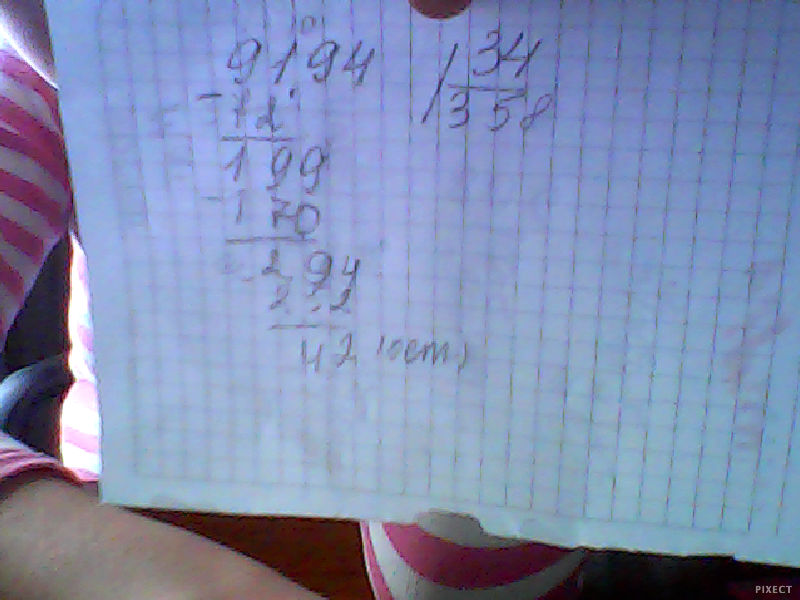 9194 34
-72 358
199
-170
294
2 2
42 (ост)
PIXECT